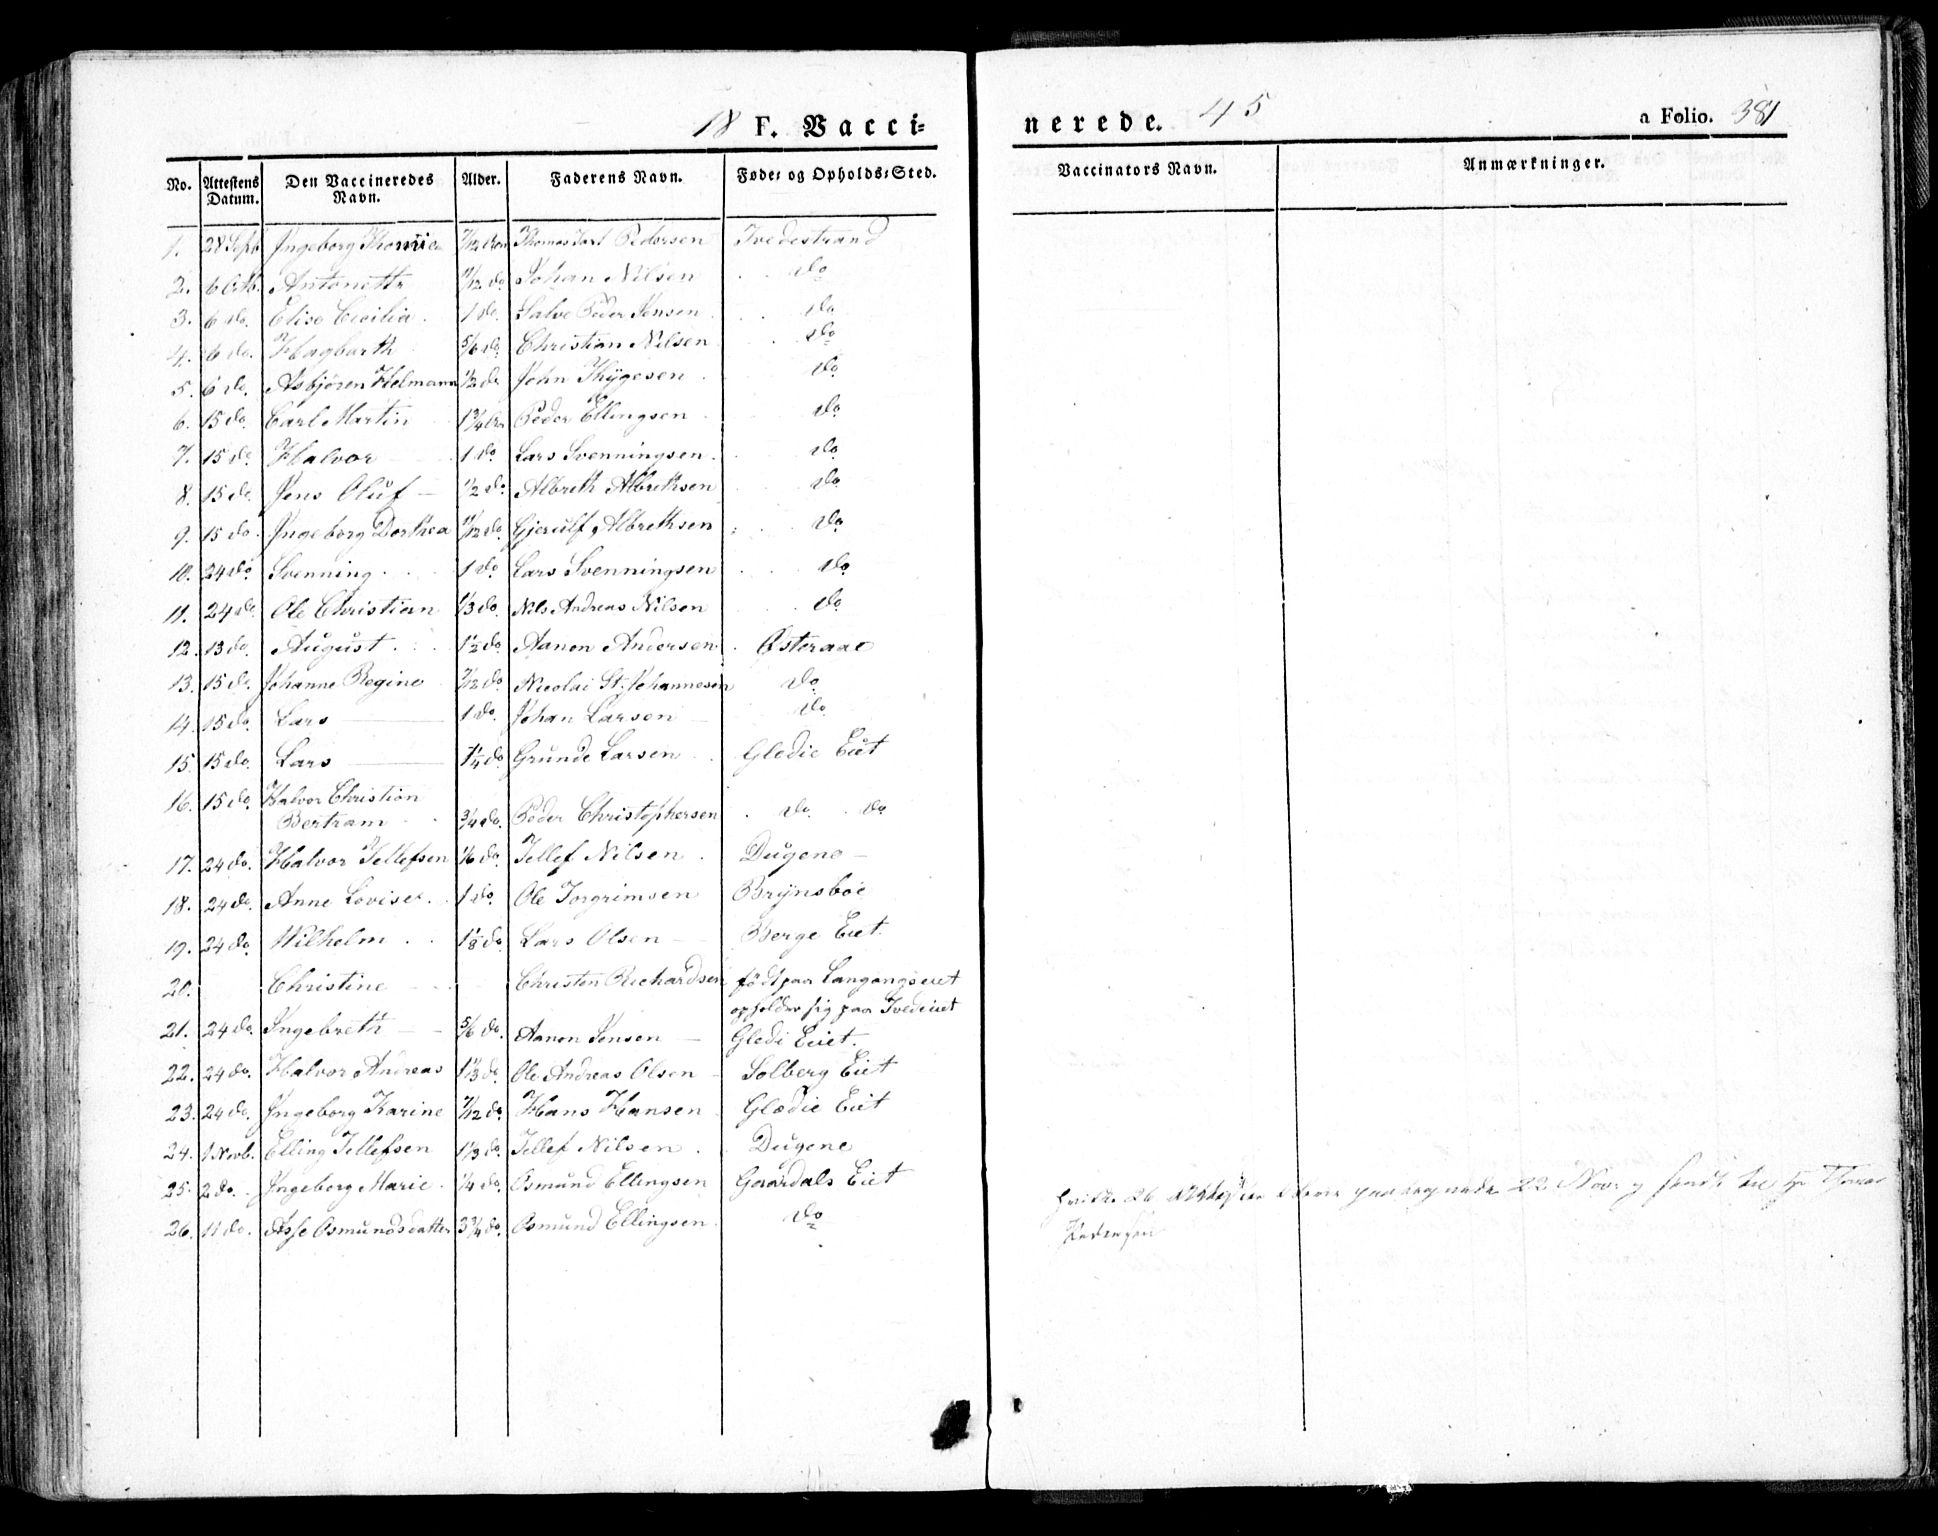 18 F. Vacci=
nerede. 45 a Folio. 381
No. Attestens Datum. Den Vaccineredes Navn. Alder. Faderens Navn. Føde= og Opholds=Sted. Vaccinators Navn. Anmærkninger.
1. 28 Septr Ingeborg 7/12 Thomas Pedersen Tvedestrand
2. 6 Octb. Antonette 11/12 do Johan Nilsen do
3. 6 do. Elise Cecilia 1 do. Salve Peder Jensen do
4. 6 do. Hagbarth 5/6 do Christian Nilsen do
5. 6 do. Asbjören Helmann 1/2 do John Thÿgesen do
6. 15 do. Carl Martin 1 3/4 Peder Ellingsen do
7. 15 do. Halvor 1 do Lars Svenningsen do
8. 15 do. Jens Oluf 1/2 do Albreth Albrethsen do
9. 15 do. Ingeborg Dorthea 11/12 do. Gjerulf Albrethsen do
10. 24 do Svenning 1 do Lars Svenningsen do
11. 24 do Ole Christian 1/3 do. Nils Andreas Nilsen do
12. 13 do. August 1 1/2 do Aanon Andersen Østeraae
13. 15 do. Johanne Regine 7/12 do Nicolai St. Johannesen do
14. 15 do. Lars 1 do. Johan Larsen do
15. 15 do. Lars 1 1/4 do Grunde Larsen Gledie Eiet
16. 15 do. Halvor Christian
Bertram 3/4 do. Peder Christophersen do. do
17. 24 do. Halvor Tellefsen 1/6 do. Tellef Nilsen Dugene
18. 24 do. Anne Lovise 1 do. Ole Torgrimsen Brÿnsböe
19. 24 do. Wilhelm 1 1/8 do Lars Olsen Berge Eiet.
20. Christine Christen Richardsen född paa Langangseiet
opholder sig paa Tvedeiet
21. 24 do. Ingebreth 5/6 do. Aanon Jensen Gledi Eiet.
22. 24 do. Halvor Andreas 1 1/3 do. Ole Andreas Olsen Solberg Eiet
23. 24 do. Ingeborg Karine 7/12 do. Hans Hansen Glædie Eiet
24. 1 Novb. Elling Tellefsen 1 1/3 do. Tellef Nilsen Dugene
25. 2 do. Ingeborg Marie 1/4 do. Osmund Ellingsen Gaardals Eiet
26. 11 do. Asse Osmundsdatter 3 3/4 do. Osmund Ellingsen do
hvilke 26 Attester 22 Novr sendt